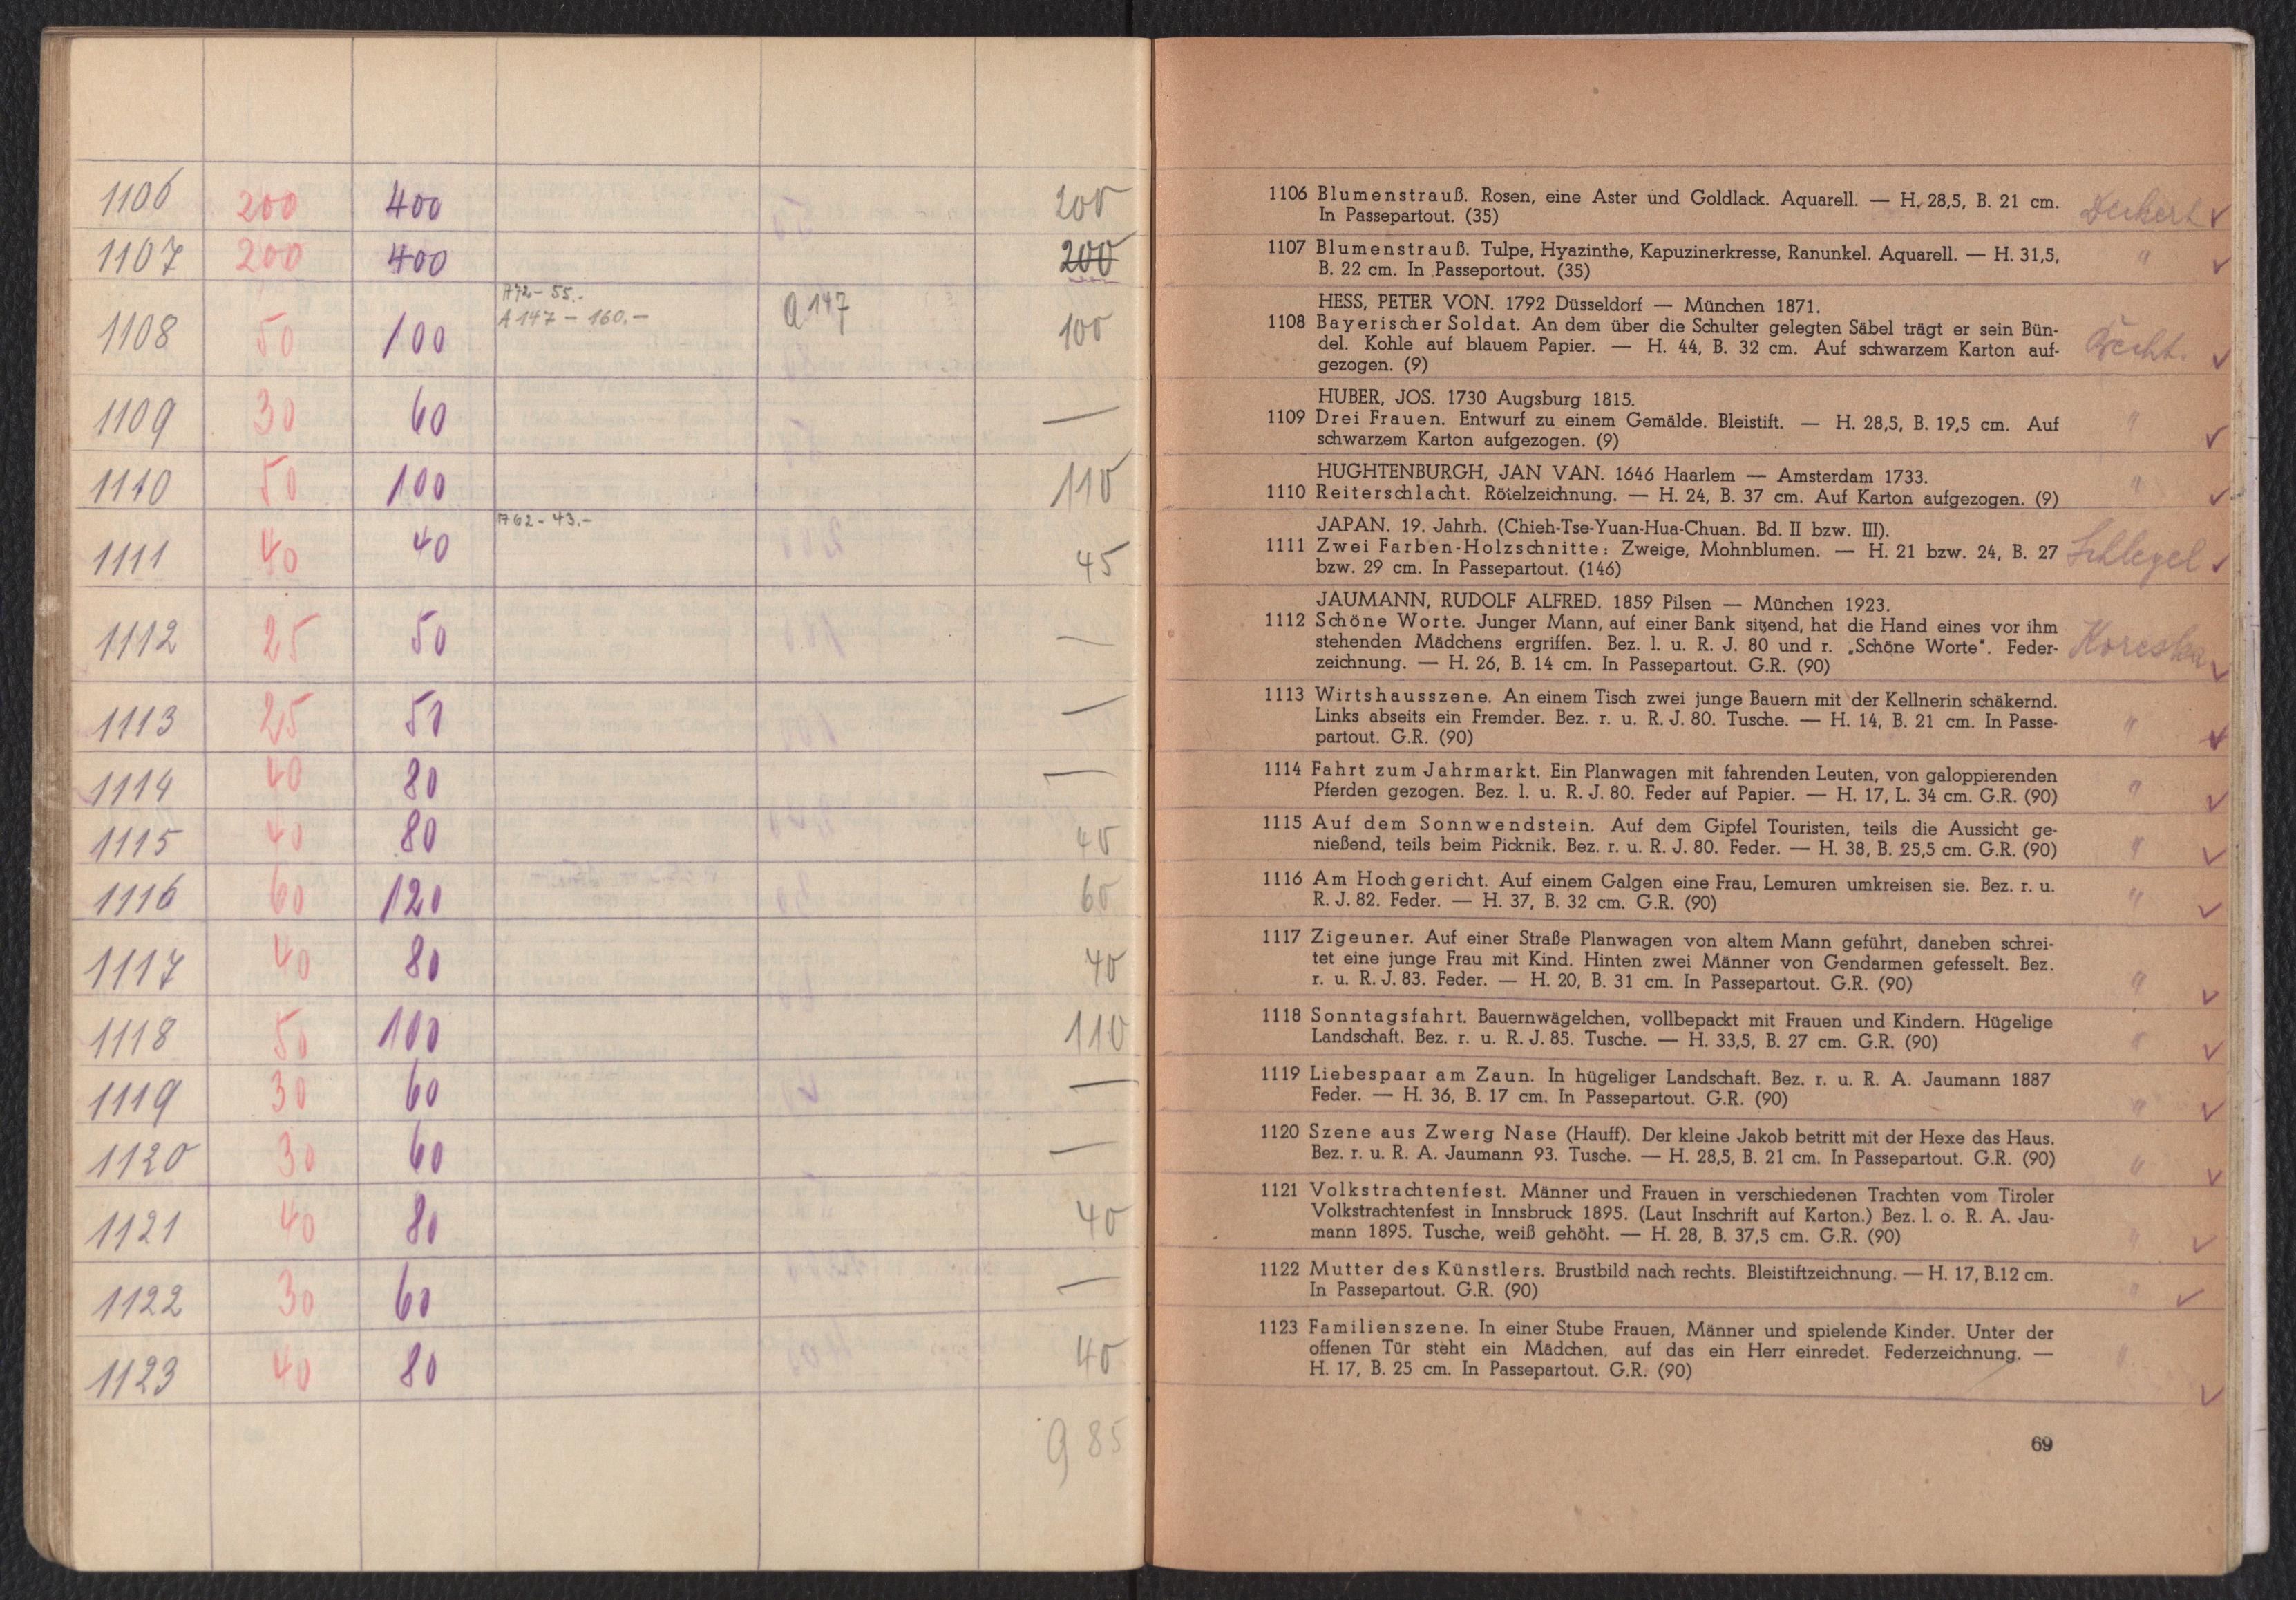 1106 200 400 200
1107 200 400 200
A72 - 55.-
1108 50 100 A147 - 160.- A147 100
1109 30 60 —
1110 50 100 110
A62 - 43.-
1111 40 40 45
1112 25 50 —
1113 25 50 —
1114 40 80 —
1115 40 80 40
1116 60 120 60
1117 40 80 40
1118 50 100 110
1119 30 60 —
1120 30 60 —
1121 40 80 40
1122 30 60 —
1123 40 80 40
985
1106 Blumenstrauß. Rosen, eine Aster und Goldlack. Aquarell. — H. 28,5, B. 21 cm.
In Passepartout. (35)
1107 Blumenstrauß. Tulpe, Hyazinthe, Kapuzinerkresse, Ranunkel. Aquarell. — H. 31,5, "
B. 22 cm. In Passeportout. (35)
HESS, PETER VON. 1792 Düsseldorf — München 1871.
1108 Bayerischer Soldat. An dem über die Schulter gelegten Säbel trägt er sein Bün-
del. Kohle auf blauem Papier. — H. 44, B. 32 cm. Auf schwarzem Karton auf-
gezogen. (9)
HUBER, JOS. 1730 Augsburg 1815.
1109 Drei Frauen. Entwurf zu einem Gemälde. Bleistift. — H. 28,5, B. 19,5 cm. Auf "
schwarzem Karton aufgezogen. (9)
HUGHTENBURGH, JAN VAN. 1646 Haarlem — Amsterdam 1733.
1110 Reiterschlacht. Rötelzeichnung. — H. 24, B. 37 cm. Auf Karton aufgezogen. (9) "
JAPAN. 19. Jahrh. (Chieh-Tse-Yuan-Hua-Chuan. Bd. II bzw. III).
1111 Zwei Farben-Holzschnitte: Zweige, Mohnblumen. — H. 21 bzw. 24, B. 27 Schlegel
bzw. 29 cm. In Passepartout. (146)
JAUMANN, RUDOLF ALFRED. 1859 Pilsen — München 1923.
1112 Schöne Worte. Junger Mann, auf einer Bank sitzend, hat die Hand eines vor ihm
stehenden Mädchens ergriffen. Bez. l. u. R. J. 80 und r. „Schöne Worte". Feder-
zeichnung. — H. 26, B. 14 cm. In Passepartout. G.R. (90)
1113 Wirtshausszene. An einem Tisch zwei junge Bauern mit der Kellnerin schäkernd.
Links abseits ein Fremder. Bez. r. u. R. J. 80. Tusche. — H. 14, B. 21 cm. In Passe- "
partout. G.R. (90)
1114 Fahrt zum Jahrmarkt. Ein Planwagen mit fahrenden Leuten, von galoppierenden
Pferden gezogen. Bez. l. u. R. J. 80. Feder auf Papier. — H. 17, L. 34 cm. G.R. (90) "
1115 Auf dem Sonnwendstein. Auf dem Gipfel Touristen, teils die Aussicht ge-
nießend, teils beim Picknik. Bez. r. u. R. J. 80. Feder. — H. 38, B. 25,5 cm. G.R. (90) "
1116 Am Hochgericht. Auf einem Galgen eine Frau, Lemuren umkreisen sie. Bez. r. u.
R. J. 82. Feder. — H. 37, B. 32 cm. G.R. (90) "
1117 Zigeuner. Auf einer Straße Planwagen von altem Mann geführt, daneben schrei-
tet eine junge Frau mit Kind. Hinten zwei Männer von Gendarmen gefesselt. Bez.
r. u. R. J. 83. Feder. — H. 20, B. 31 cm. In Passepartout. G.R. (90) "
1118 Sonntagsfahrt. Bauernwägelchen, vollbepackt mit Frauen und Kindern. Hügelige
Landschaft. Bez. r. u. R. J. 85. Tusche. — H. 33,5, B. 27 cm. G.R. (90) "
1119 Liebespaar am Zaun. In hügeliger Landschaft. Bez. r. u. R. A. Jaumann 1887
Feder. — H. 36, B. 17 cm. In Passepartout. G.R. (90) "
1120 Szene aus Zwerg Nase (Hauff). Der kleine Jakob betritt mit der Hexe das Haus.
Bez. r. u. R. A. Jaumann 93. Tusche. — H. 28,5, B. 21 cm. In Passepartout. G.R. (90) "
1121 Volkstrachtenfest. Männer und Frauen in verschiedenen Trachten vom Tiroler
Volkstrachtenfest in Innsbruck 1895. (Laut Inschrift auf Karton.) Bez. l. o. R. A. Jau-
mann 1895. Tusche, weiß gehöht. — H. 28, B. 37,5 cm. G.R. (90) "
1122 Mutter des Künstlers. Brustbild nach rechts. Bleistiftzeichnung. — H. 17, B.12 cm.
In Passepartout. G.R. (90) "
1123 Familienszene. In einer Stube Frauen, Männer und spielende Kinder. Unter der
offenen Tür steht ein Mädchen, auf das ein Herr einredet. Federzeichnung. — "
H. 17, B. 25 cm. In Passepartout. G.R. (90)
69